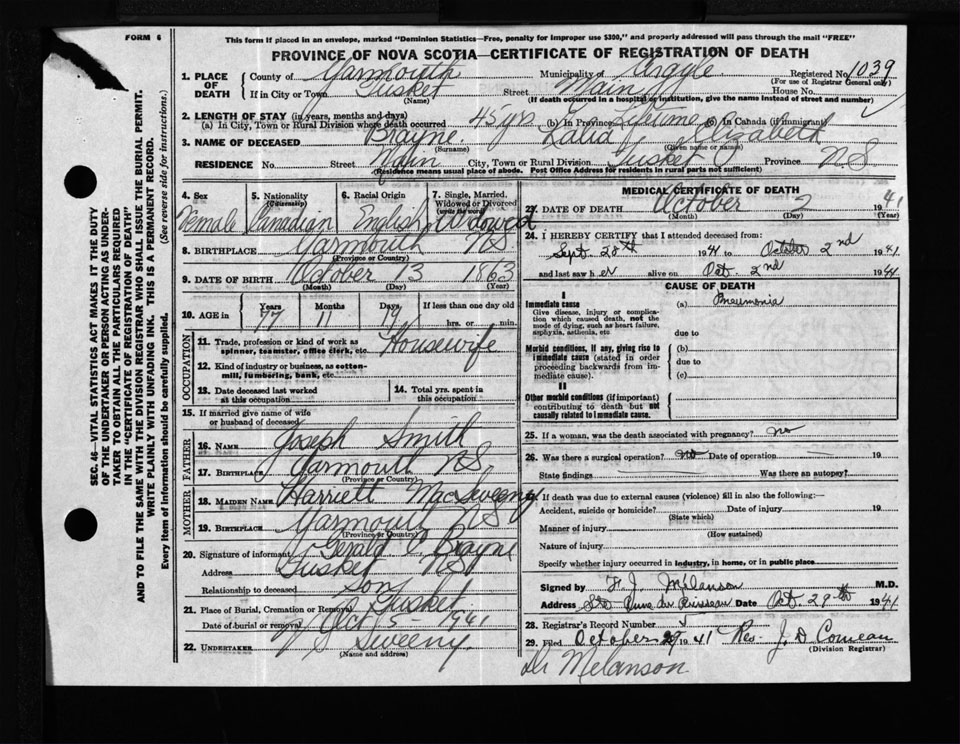 FORM 6
This form if placed in an envelope, marked "Dominion Statistics—Free, penalty for improper use $300," and properly addressed will pass through the mail "FREE"
PROVINCE OF NOVA SCOTIA—CERTIFICATE OF REGISTRATION OF DEATH
SEC. 46—VITAL STATISTICS ACT MAKES IT THE DUTY
OF THE UNDERTAKER OR PERSON ACTING AS UNDER-
TAKER TO OBTAIN ALL THE PARTICULARS REQUIRED
IN THE "CERTIFICATE OF REGISTRATION OF DEATH"
AND TO FILE THE SAME WITH THE DIVISION REGISTRAR WHO SHALL ISSUE THE BURIAL PERMIT.
WRITE PLAINLY WITH UNFADING INK. THIS IS A PERMANENT RECORD.
Every item of information should be carefully supplied. (See reverse side for instructions.)
1. PLACE OF DEATH County of Yarmouth Municipality of Argyle Registered No. 1039
(For use of Registrar General only)
If in City or Town Tusket Street Main House No.
(Name) (If death occurred in a hospital or institution, give the name instead of street and number)
2. LENGTH OF STAY (in years, months and days)
(a) In City, Town or Rural Division where death occurred 45 yrs (b) In Province Lifetime (c) In Canada (if immigrant)
3. NAME OF DECEASED Brayne Elizabeth
(Surname) (Given name or names)
RESIDENCE No. Street Main City, Town or Rural Division Tusket Province N.S.
(Residence means usual place of abode. Post Office Address for residents in rural parts not sufficient)
4. Sex Female
5. Nationality (Citizenship) Canadian
6. Racial Origin English
7. Single, Married, Widowed or Divorced (write the word) Widowed
8. BIRTHPLACE Yarmouth N.S.
(Province or Country)
9. DATE OF BIRTH October 13 1863
(Month) (Day) (Year)
10. AGE in Years 77 Months 11 Days 19 If less than one day old hrs. or min.
OCCUPATION
11. Trade, profession or kind of work as spinner, teamster, office clerk, etc. Housewife
12. Kind of industry or business, as cotton-mill, lumbering, bank, etc.
13. Date deceased last worked at this occupation
14. Total yrs. spent in this occupation
15. If married give name of wife or husband of deceased
FATHER
16. NAME Joseph Smith
17. BIRTHPLACE Yarmouth N.S.
(Province or Country)
MOTHER
18. MAIDEN NAME Harriett MacSweeny
19. BIRTHPLACE Yarmouth N.S.
(Province or Country)
20. Signature of informant Gerald C. Brayne
Address Tusket N.S.
Relationship to deceased Son
21. Place of Burial, Cremation or Removal Tusket
Date of burial or removal Oct 5-1941
22. UNDERTAKER Sweeny
(Name and address)
MEDICAL CERTIFICATE OF DEATH
23. DATE OF DEATH October 2 1941
(Month) (Day) (Year)
24. I HEREBY CERTIFY that I attended deceased from:
Sept. 28th 1941 to October 2nd 1941
and last saw her alive on Oct. 2nd 1941
CAUSE OF DEATH
I
Immediate cause (a) Pneumonia
Give disease, injury or complication which caused death, not the mode of dying, such as heart failure, asphyxia, asthenia, etc
due to
Morbid conditions, if any, giving rise to immediate cause (stated in order proceeding backwards from immediate cause). (b)
due to
(c)
II
Other morbid conditions (if important) contributing to death but not causally related to immediate cause.
25. If a woman, was the death associated with pregnancy? no
26. Was there a surgical operation? No Date of operation 19
State findings Was there an autopsy?
27. If death was due to external causes (violence) fill in also the following:—
Accident, suicide or homicide? Date of injury 19
(State which)
Manner of injury
(How sustained)
Nature of injury
Specify whether injury occurred in industry, in home, or in public place
Signed by F. J. Melanson M.D.
Address Ste Anne du Ruisseau Date Oct. 29th 1941
28. Registrar's Record Number
29. Filed October 29 1941 Rev. J. D. Comeau
(Division Registrar)
Dr Melanson